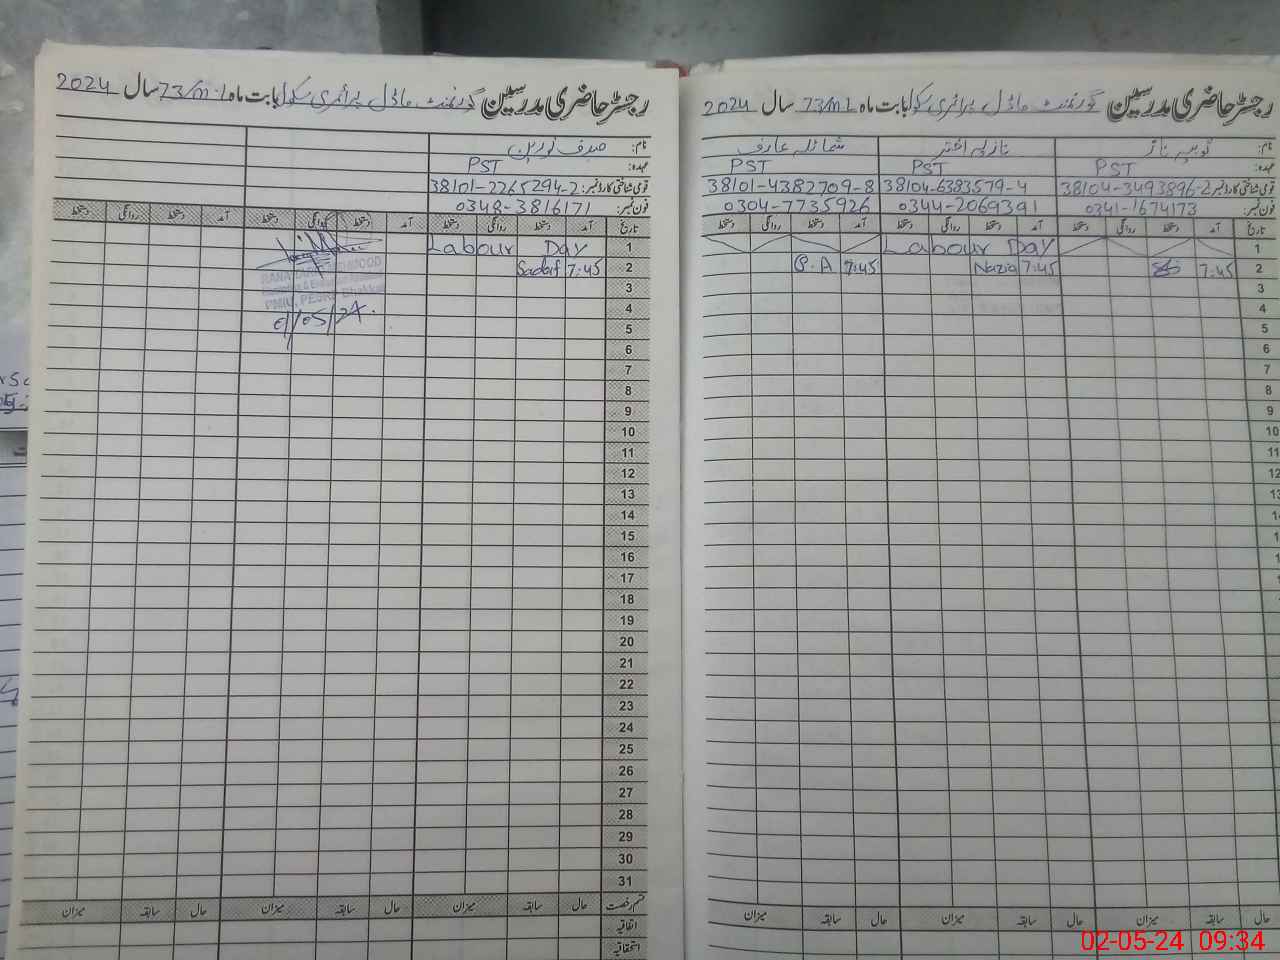 رجسٹر حاضری مدرسین گورنمنٹ ماڈل پرائمری سکول بابت ماہ 73/ML سال 2024
نام: صدف نورین
عہدہ: PST
قومی شناختی کارڈ نمبر: 38101-2265294-2
فون نمبر: 0348-3816171
تاریخ آمد دستخط روانگی دستخط آمد دستخط روانگی دستخط آمد دستخط روانگی دستخط
1 Labour Day
2 7:45 Sadaf
3
4
01/05/24.
5
6
7
8
9
10
11
12
13
14
15
16
17
18
19
20
21
22
23
24
25
26
27
28
29
30
31
قسم رخصت حال سابقہ میزان حال سابقہ میزان حال سابقہ میزان
اتفاقیہ
استحقاقیہ
رجسٹر حاضری مدرسین گورنمنٹ ماڈل پرائمری سکول بابت ماہ 73/ML سال 2024
نام: ثوبیہ ناز نازیہ اختر شمائلہ عارف
عہدہ: PST PST PST
قومی شناختی کارڈ نمبر 38104-3493896-2 38104-6383579-4 38101-4382709-8
فون نمبر: 0341-1674173 0344-2069391 0304-7735926
تاریخ آمد دستخط روانگی دستخط آمد دستخط روانگی دستخط آمد دستخط روانگی دستخط
1 Labour Day
2 7:45 7:45 Nazia 7:45 P.A
3
4
5
6
7
8
9
10
11
12
13
حال سابقہ میزان حال سابقہ میزان حال سابقہ میزان
02-05-24 09:34